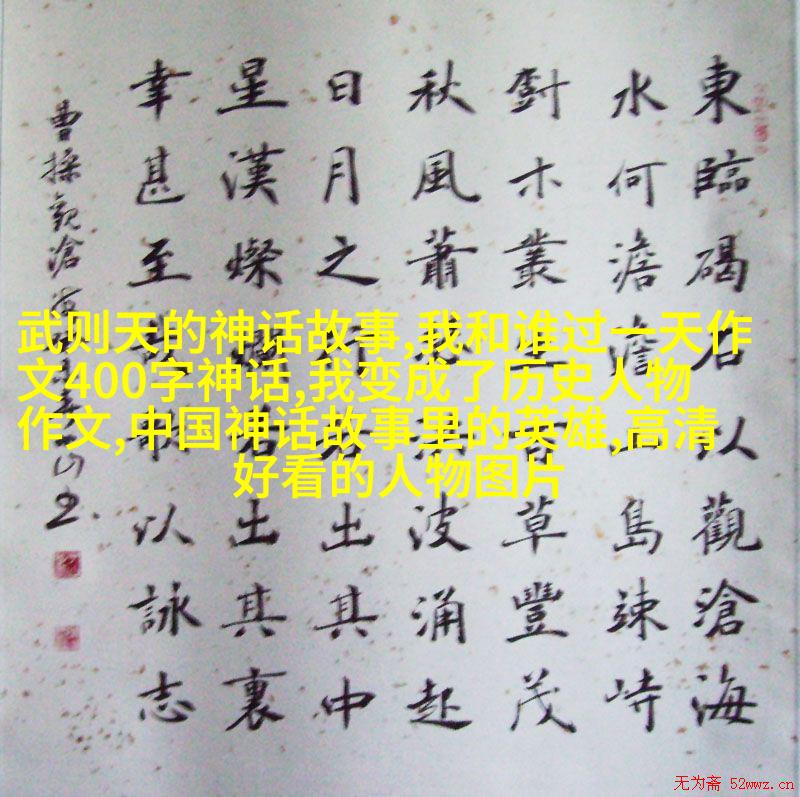 東臨碣石以觀滄海
水何澹澹山島竦峙
尌木叢生百草豐茂
秋風蕭瑟洪波涌起
日月之行若出其中
星漢燦爛若出其裏
幸甚至哉歌以詠志
曹操觀滄海
山书
武则天的神话故事,我和谁过一天作
文400字神话,我变成了历史人物
作文,中国神话故事里的英雄,高清
好看的人物图片
无为斋 52wwz.cn